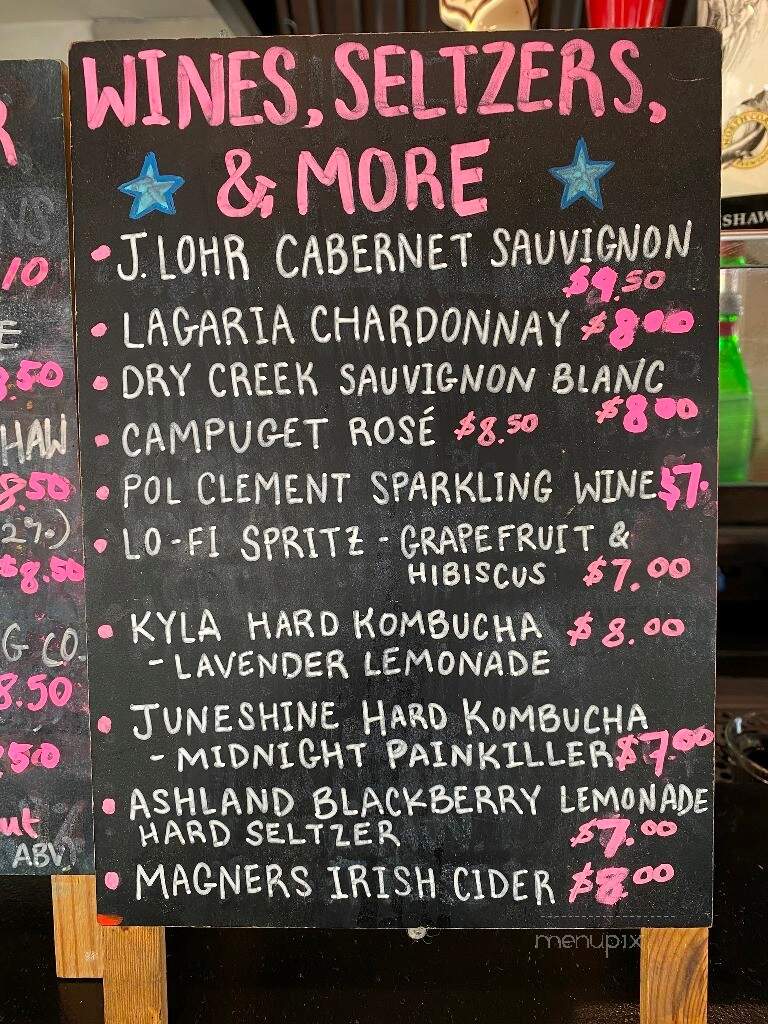 WINES, SELTZERS,
& MORE
• J. LOHR CABERNET SAUVIGNON
$9.50
• LAGARIA CHARDONNAY $8.00
• DRY CREEK SAUVIGNON BLANC
$8.00
• CAMPUGET ROSÉ $8.50
• POL CLEMENT SPARKLING WINE $7.
• LO-FI SPRITZ - GRAPEFRUIT &
HIBISCUS $7.00
• KYLA HARD KOMBUCHA $8.00
- LAVENDER LEMONADE
• JUNESHINE HARD KOMBUCHA
- MIDNIGHT PAINKILLER $7.00
• ASHLAND BLACKBERRY LEMONADE
HARD SELTZER $7.00
• MAGNERS IRISH CIDER $8.00
menupix
HAW
8.50
$8.50
G CO.
8.50
ABV)
SHAW